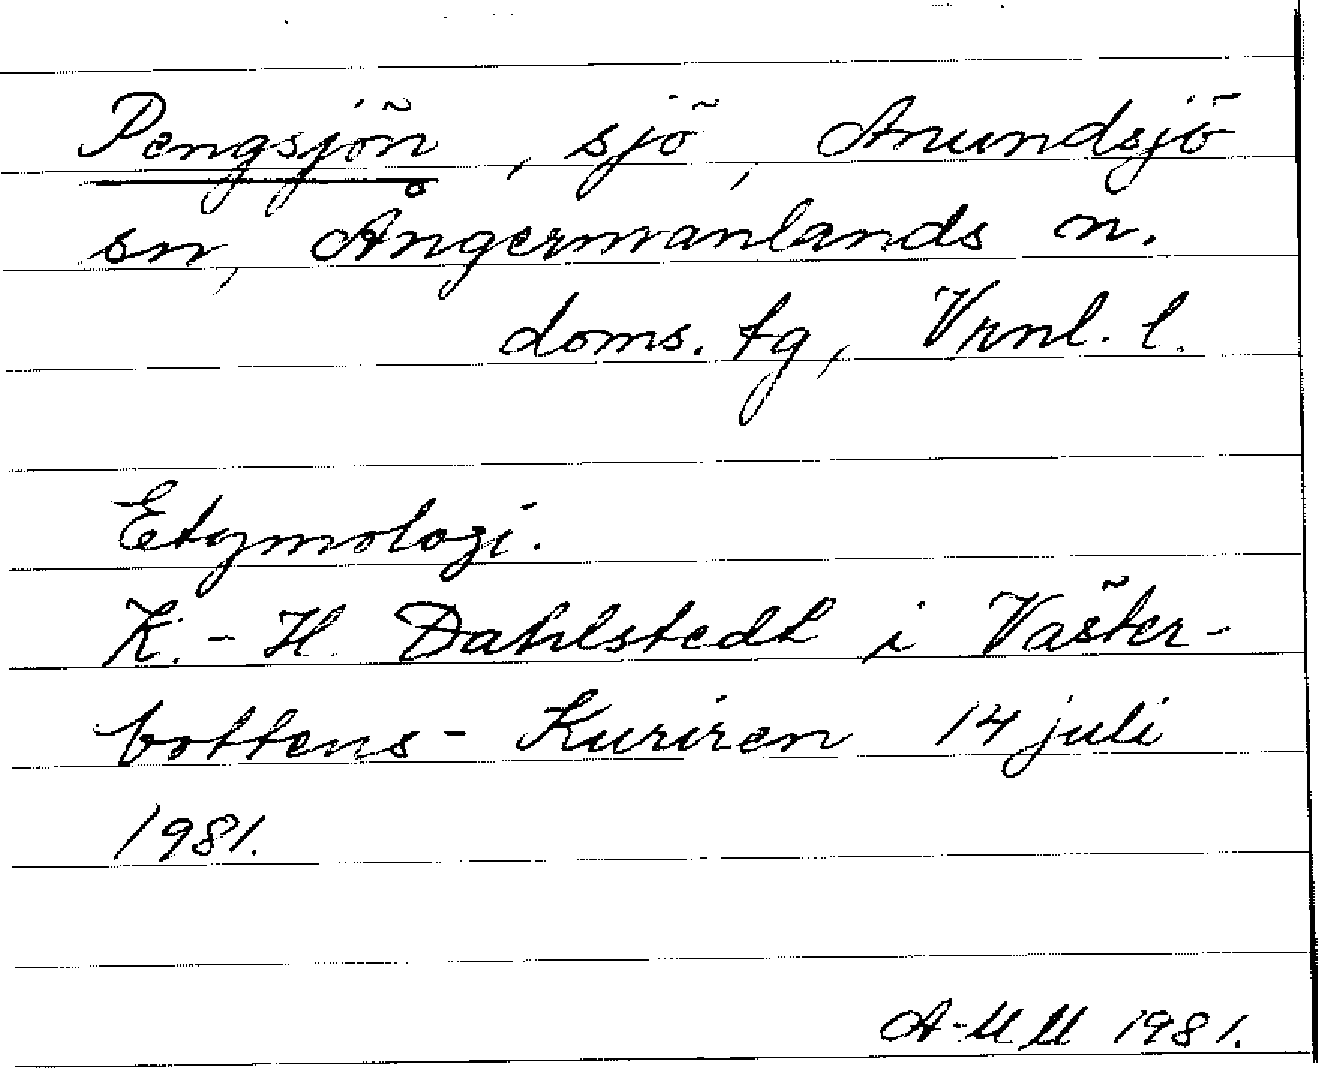 Pengsjön, sjö, Anundsjö
sn, Ångermanlands n.
doms. tg, Vrnl. l.
Etymologi.
K.-H. Dahlstedt i Väster-
bottens-Kuriren 14 juli
1981.
A-MM 1981.